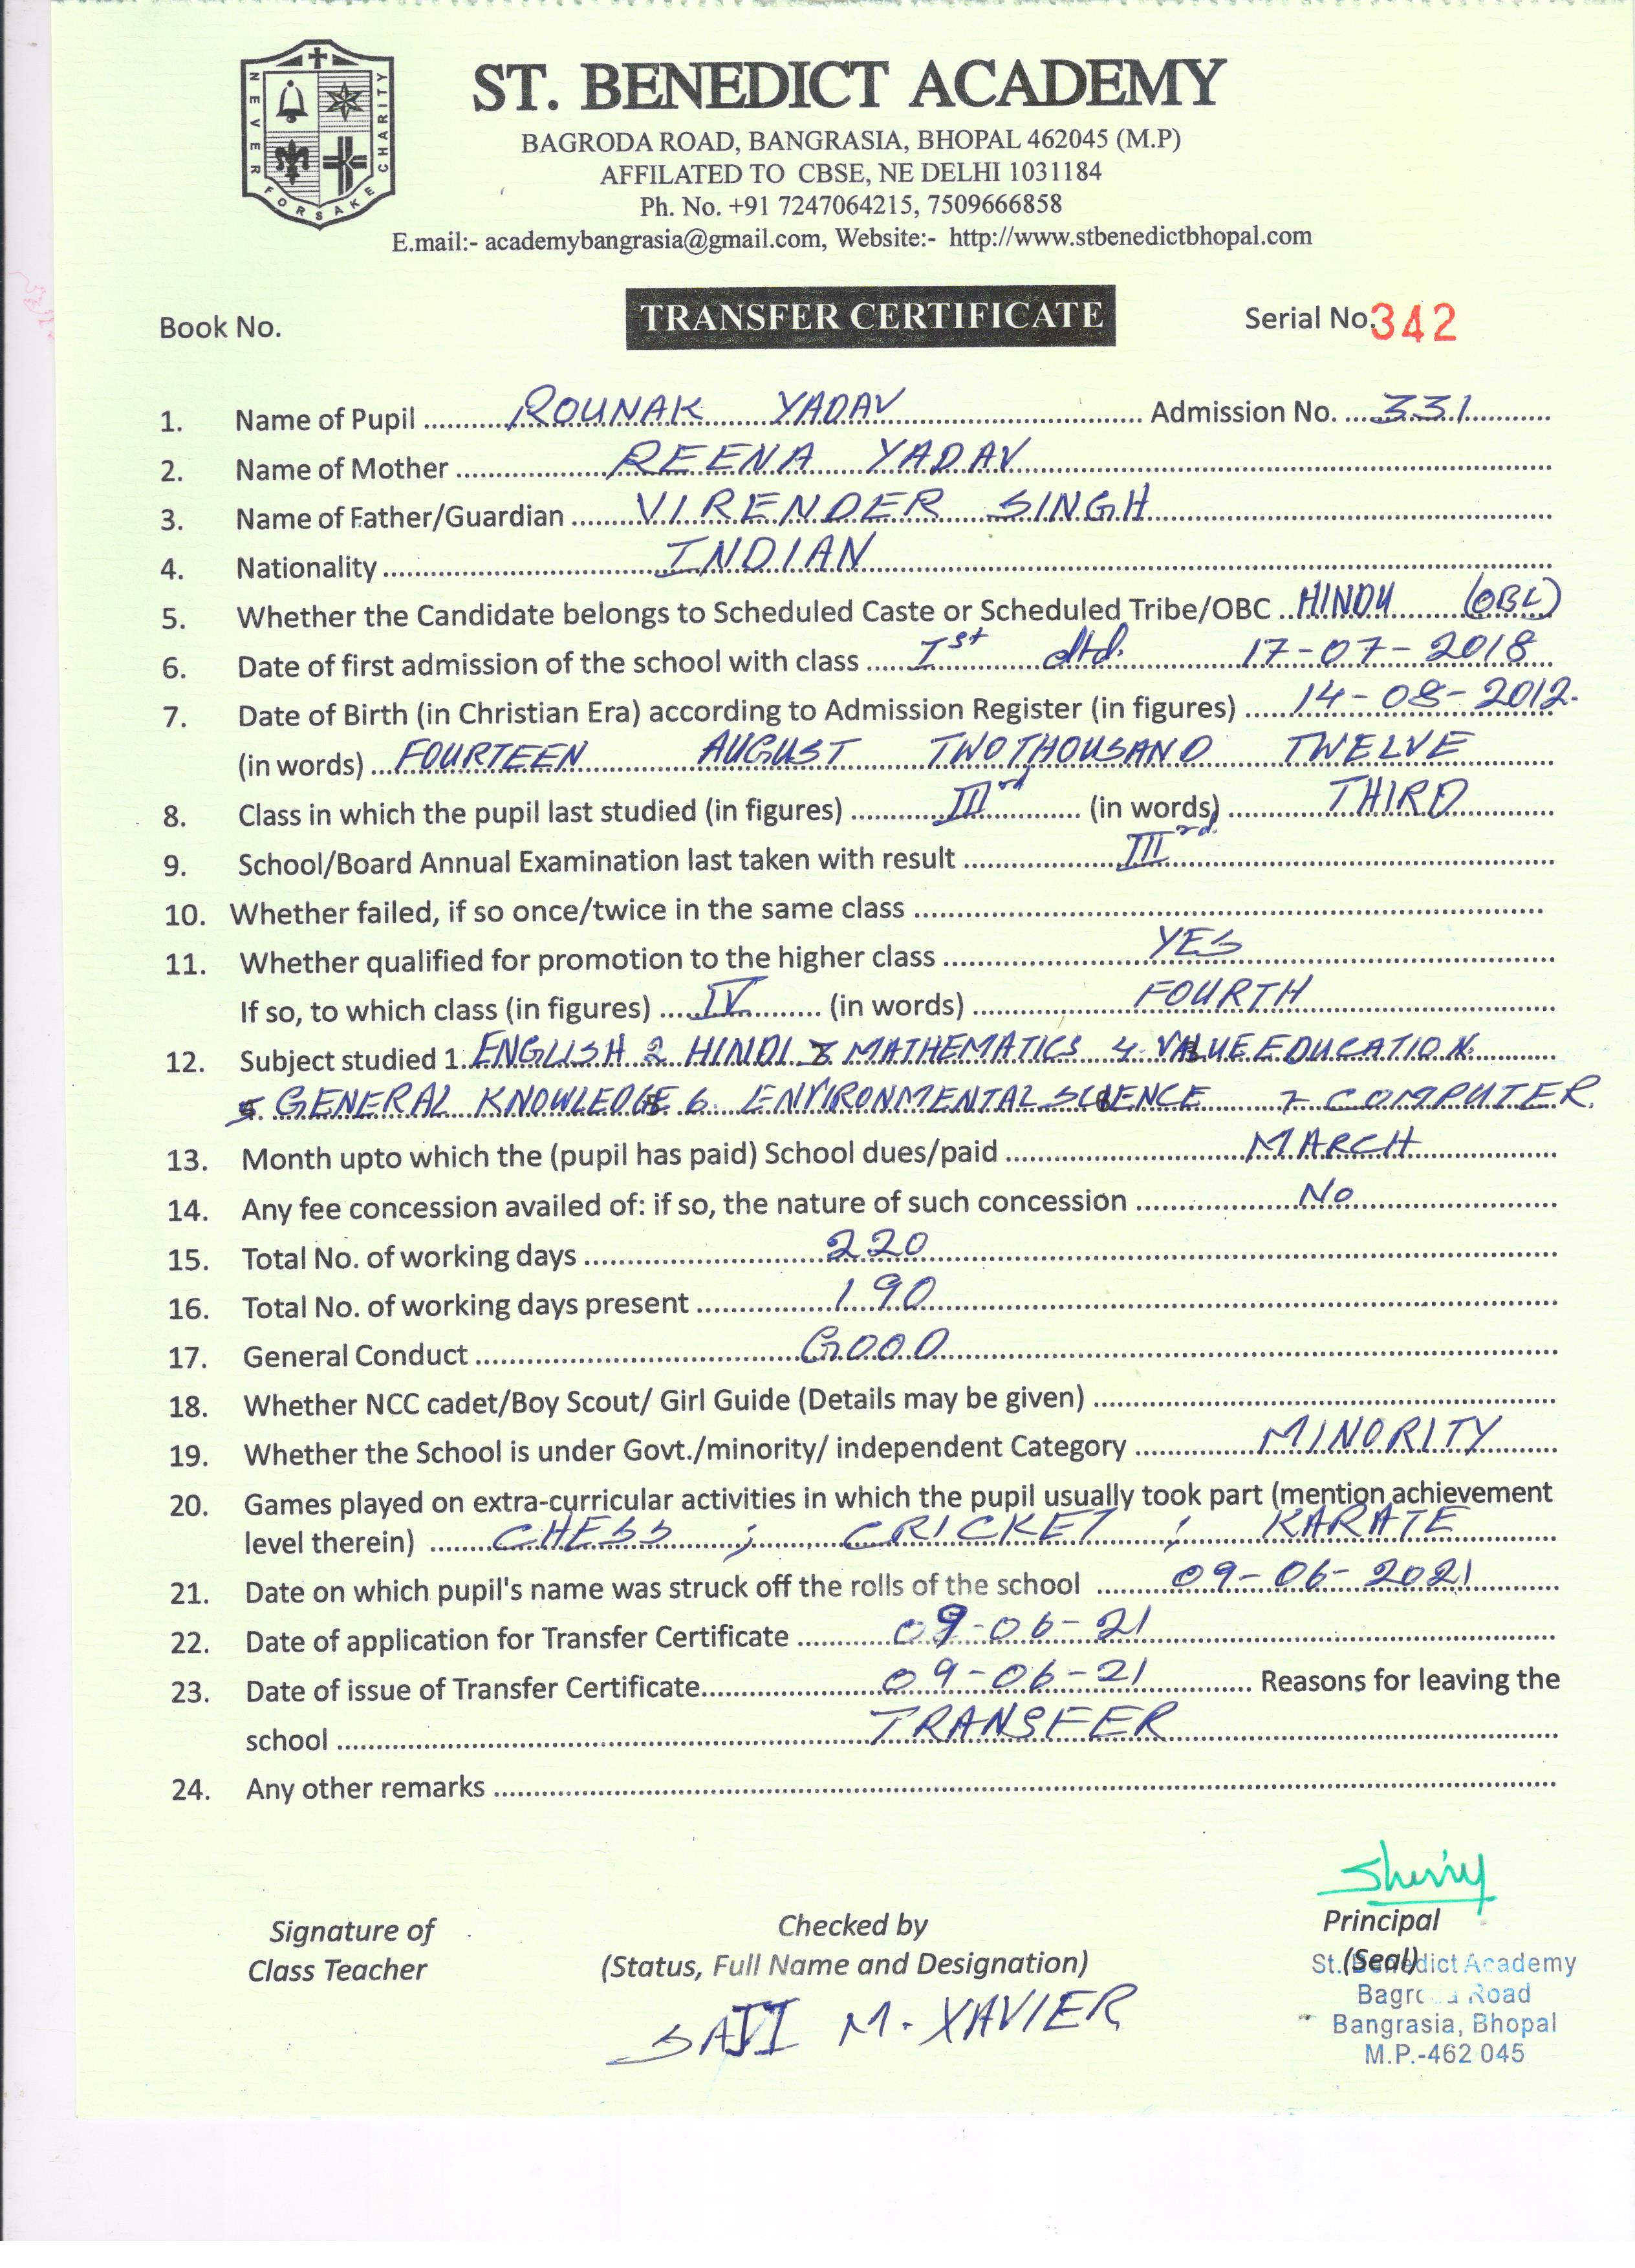 NEVER FORSAKE CHARITY
ST. BENEDICT ACADEMY
BAGRODA ROAD, BANGRASIA, BHOPAL 462045 (M.P)
AFFILATED TO CBSE, NE DELHI 1031184
Ph. No. +91 7247064215, 7509666858
E.mail:- academybangrasia@gmail.com, Website:- http://www.stbenedictbhopal.com
Book No. TRANSFER CERTIFICATE Serial No. 342
1. Name of Pupil ROUNAK YADAV Admission No. 331
2. Name of Mother REENA YADAV
3. Name of Father/Guardian VIRENDER SINGH
4. Nationality INDIAN
5. Whether the Candidate belongs to Scheduled Caste or Scheduled Tribe/OBC HINDU (OBC)
6. Date of first admission of the school with class Ist dtd. 17-07-2018
7. Date of Birth (in Christian Era) according to Admission Register (in figures) 14-08-2012.
(in words) FOURTEEN AUGUST TWO THOUSAND TWELVE
8. Class in which the pupil last studied (in figures) IIIrd (in words) THIRD
9. School/Board Annual Examination last taken with result IIIrd.
10. Whether failed, if so once/twice in the same class
11. Whether qualified for promotion to the higher class YES
If so, to which class (in figures) IV (in words) FOURTH
12. Subject studied 1. ENGLISH 2 HINDI 3 MATHEMATICS 4. VALUE EDUCATION
5. GENERAL KNOWLEDGE 6. ENVIRONMENTAL SCIENCE 7 COMPUTER.
13. Month upto which the (pupil has paid) School dues/paid MARCH
14. Any fee concession availed of: if so, the nature of such concession No
15. Total No. of working days 220
16. Total No. of working days present 190
17. General Conduct GOOD
18. Whether NCC cadet/Boy Scout/ Girl Guide (Details may be given)
19. Whether the School is under Govt./minority/ independent Category MINORITY
20. Games played on extra-curricular activities in which the pupil usually took part (mention achievement
level therein) CHESS ; CRICKET ; KARATE
21. Date on which pupil's name was struck off the rolls of the school 09-06-2021
22. Date of application for Transfer Certificate 09-06-21
23. Date of issue of Transfer Certificate 09-06-21 Reasons for leaving the
school TRANSFER
24. Any other remarks
Sherry
Signature of Checked by Principal
Class Teacher (Status, Full Name and Designation) (Seal)
St. Benedict Academy
Road
SAJI M. XAVIER
Bangrasia, Bhopal
M.P.-462 045